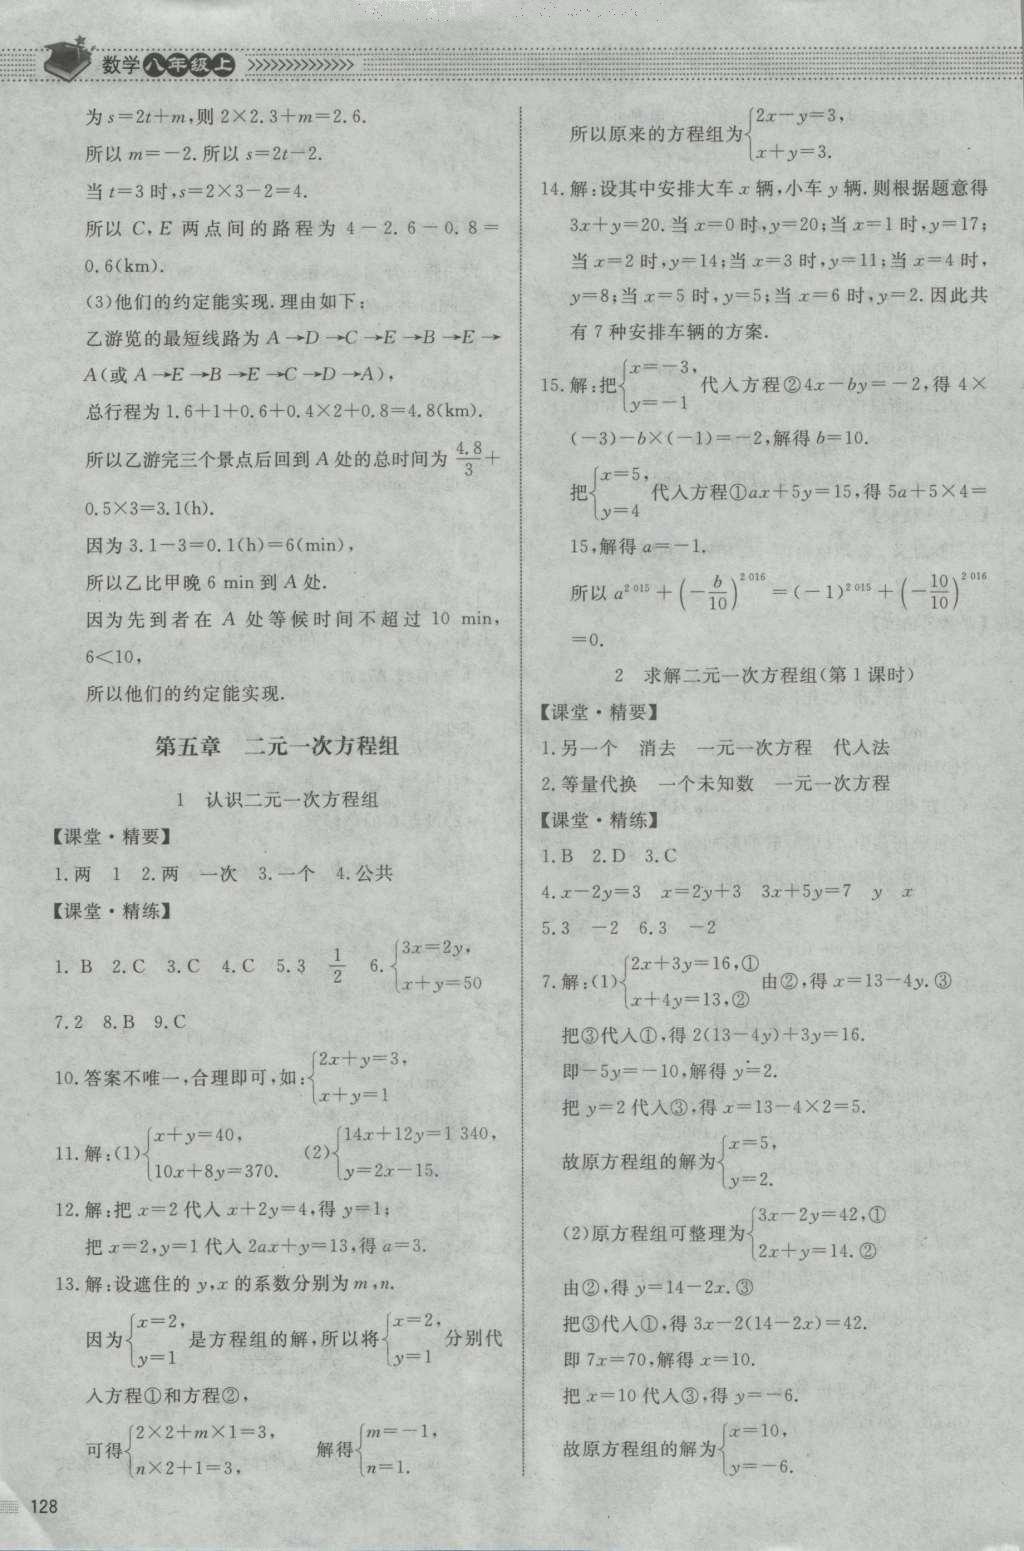 数学八年级上
为 s=2t+m,则 2×2.3+m=2.6.
所以 m=-2.所以 s=2t-2.
当 t=3 时,s=2×3-2=4.
所以 C,E 两点间的路程为 4-2.6-0.8=
0.6(km).
(3)他们的约定能实现.理由如下:
乙游览的最短线路为 A→D→C→E→B→E→
A(或 A→E→B→E→C→D→A),
总行程为 1.6+1+0.6+0.4×2+0.8=4.8(km).
所以乙游完三个景点后回到 A 处的总时间为 4.8/3+
0.5×3=3.1(h).
因为 3.1-3=0.1(h)=6(min),
所以乙比甲晚 6 min 到 A 处.
因为先到者在 A 处等候时间不超过 10 min,
6<10,
所以他们的约定能实现.
第五章 二元一次方程组
1 认识二元一次方程组
【课堂·精要】
1.两 1 2.两 一次 3.一个 4.公共
【课堂·精练】
1. B 2.C 3.C 4.C 5.3 1/2 6.{3x=2y, x+y=50
7.2 8.B 9.C
10.答案不唯一,合理即可,如:{2x+y=3, x+y=1
11.解:(1){x+y=40, 10x+8y=370. (2){14x+12y=1 340, y=2x-15.
12.解:把 x=2 代入 x+2y=4,得 y=1;
把 x=2,y=1 代入 2ax+y=13,得 a=3.
13.解:设遮住的 y,x 的系数分别为 m,n.
因为{x=2, y=1 是方程组的解,所以将{x=2, y=1 分别代
入方程①和方程②,
可得{2×2+m×1=3, n×2+1=3, 解得{m=-1, n=1.
128
所以原来的方程组为{2x-y=3, x+y=3.
14.解:设其中安排大车 x 辆,小车 y 辆.则根据题意得
3x+y=20.当 x=0 时,y=20;当 x=1 时,y=17;
当 x=2 时,y=14;当 x=3 时,y=11;当 x=4 时,
y=8;当 x=5 时,y=5;当 x=6 时,y=2.因此共
有 7 种安排车辆的方案.
15.解:把{x=-3, y=-1 代入方程②4x-by=-2,得 4×
(-3)-b×(-1)=-2,解得 b=10.
把{x=5, y=4 代入方程①ax+5y=15,得 5a+5×4=
15,解得 a=-1.
所以 a^2 015+(-b/10)^2 016=(-1)^2 015+(-10/10)^2 016
=0.
2 求解二元一次方程组(第 1 课时)
【课堂·精要】
1.另一个 消去 一元一次方程 代入法
2.等量代换 一个未知数 一元一次方程
【课堂·精练】
1.B 2.D 3.C
4.x-2y=3 x=2y+3 3x+5y=7 y x
5.3 -2 6.3 -2
7.解:(1){2x+3y=16,① x+4y=13,② 由②,得 x=13-4y.③
把③代入①,得 2(13-4y)+3y=16.
即-5y=-10,解得 y=2.
把 y=2 代入③,得 x=13-4×2=5.
故原方程组的解为{x=5, y=2.
(2)原方程组可整理为{3x-2y=42,① 2x+y=14.②
由②,得 y=14-2x.③
把③代入①,得 3x-2(14-2x)=42.
即 7x=70,解得 x=10.
把 x=10 代入③,得 y=-6.
故原方程组的解为{x=10, y=-6.